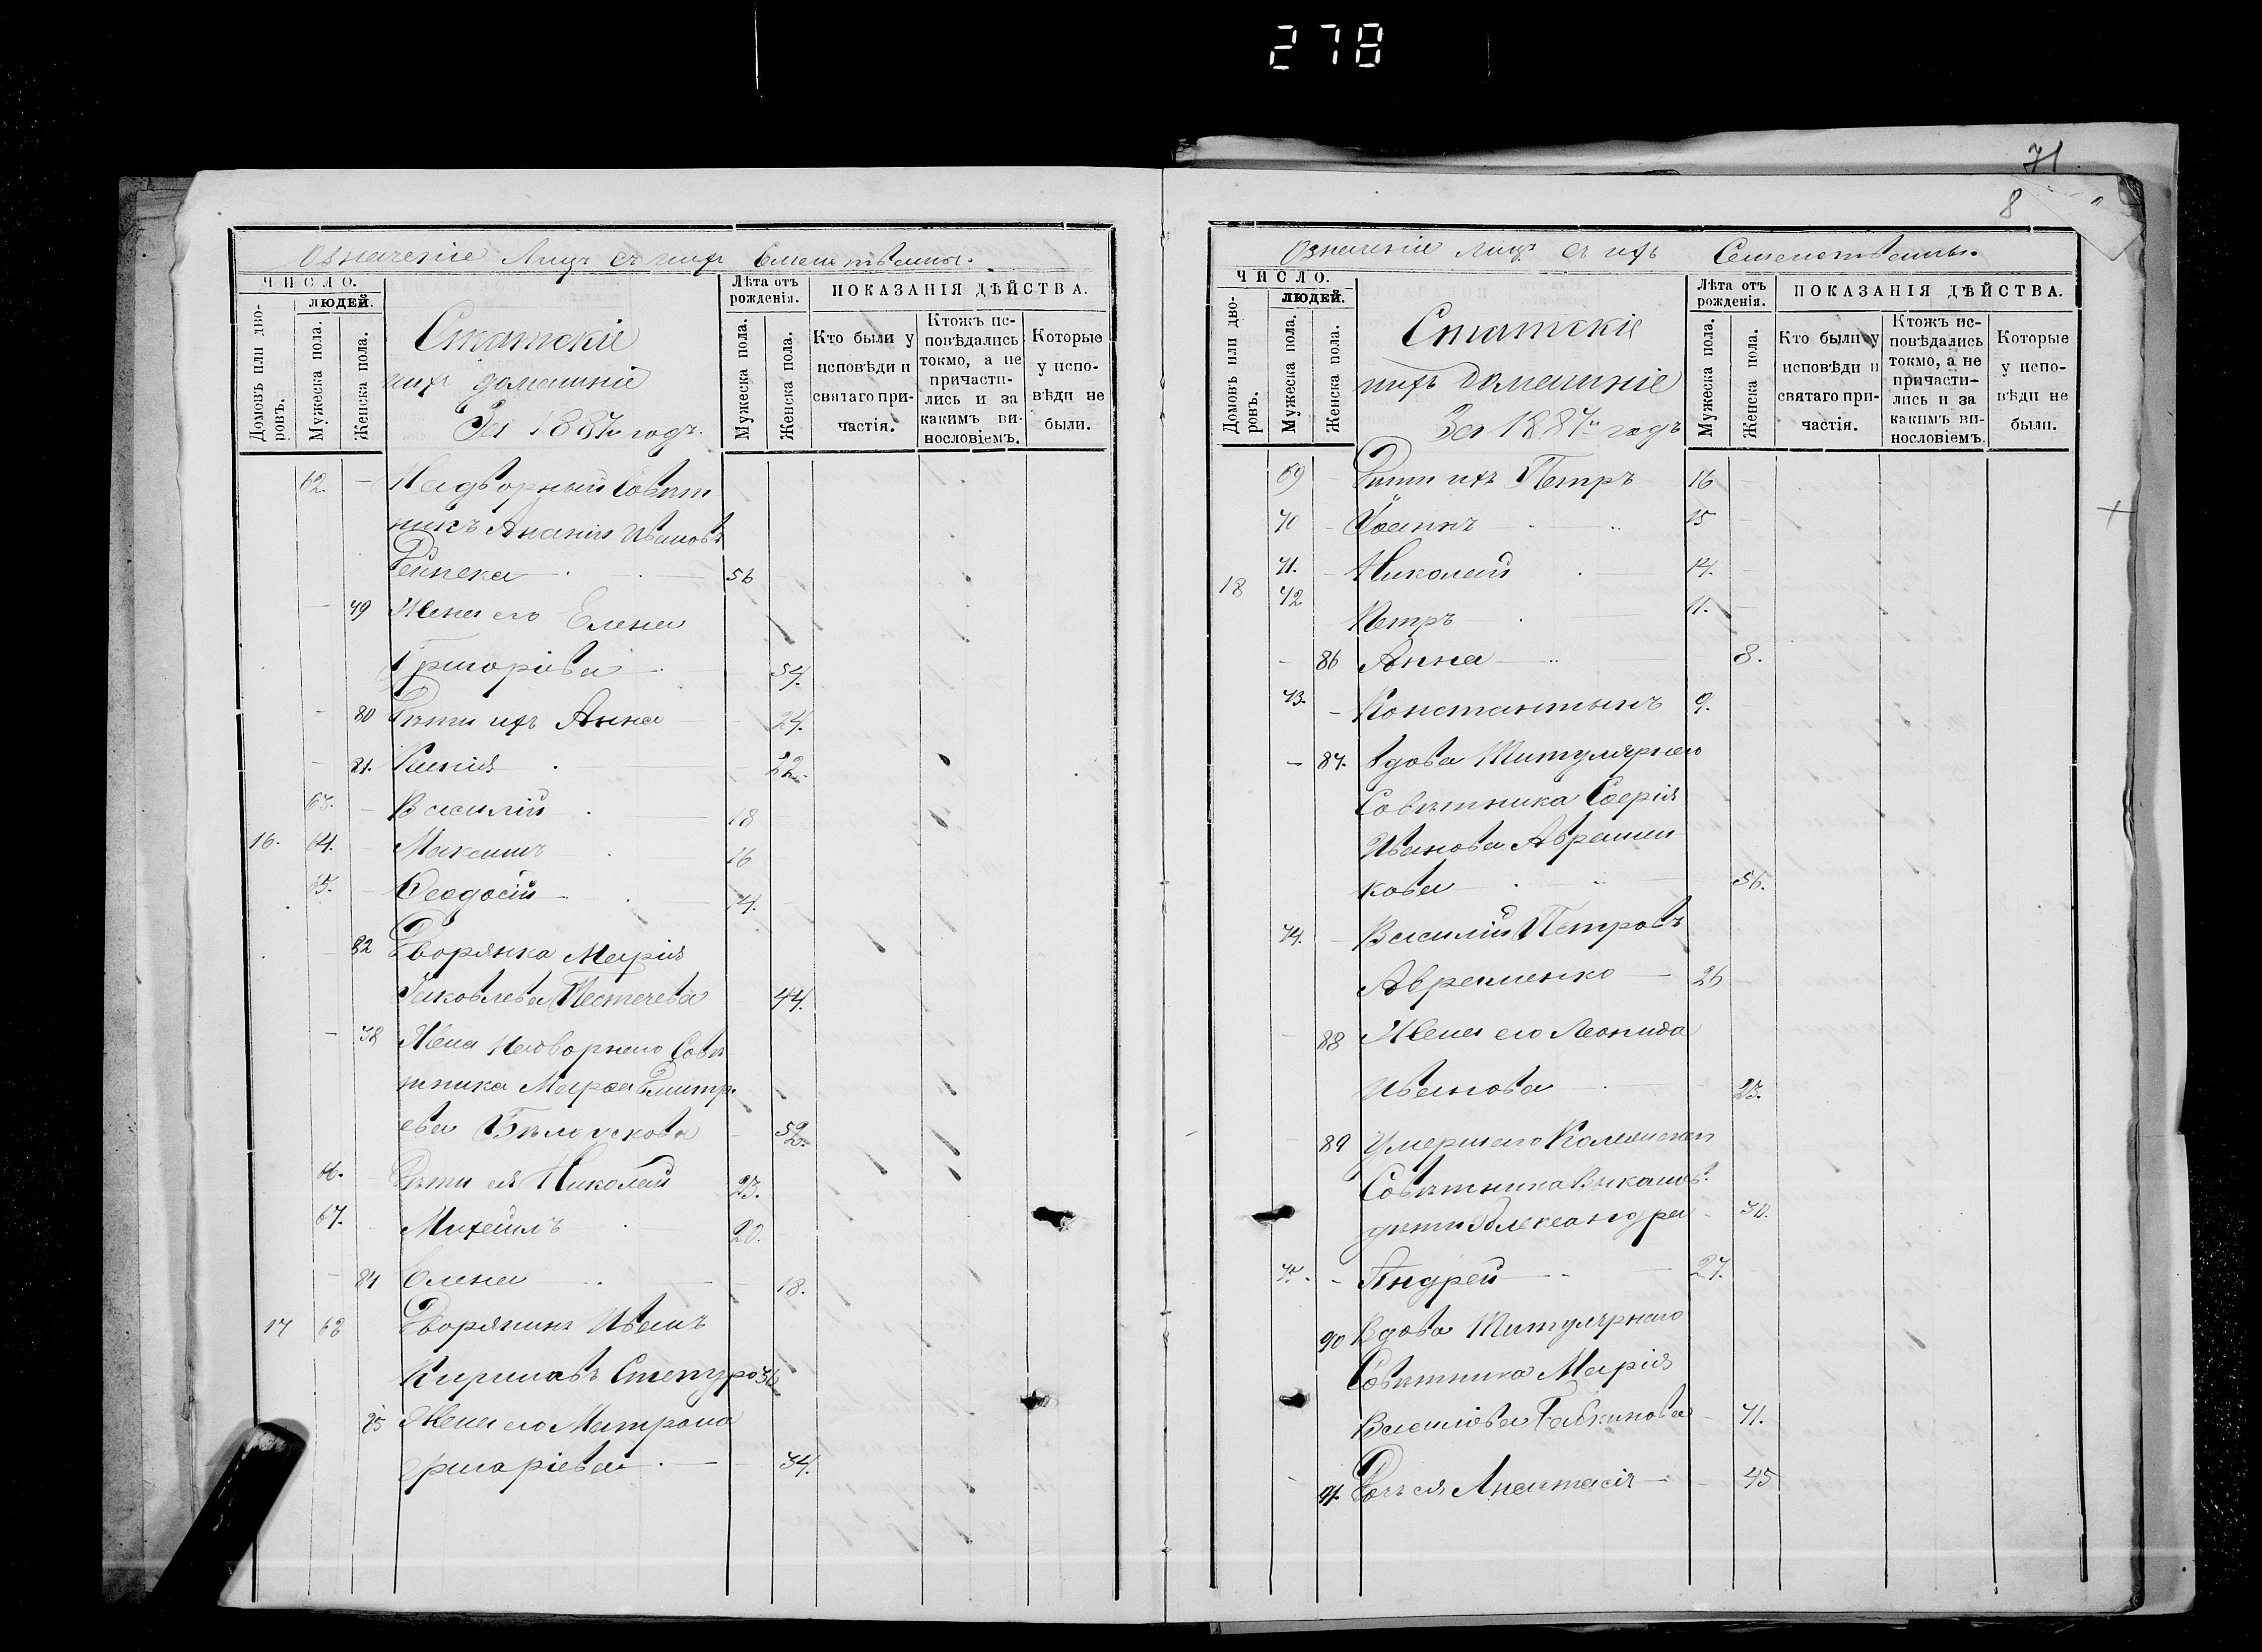 278
Означеніе Лицъ съ ихъ Семействами.
ЧИСЛО.
Домовъ или дворовъ.
ЛЮДЕЙ.
Мужеска пола.
Женска пола.
Статскіе
ихъ домашніе
За 1887й годъ.
Лѣта отъ рожденія.
Мужеска пола.
Женска пола.
ПОКАЗАНІЯ ДѢЙСТВА.
Кто были у исповѣди и святаго причастія.
Ктожъ исповѣдались токмо, а не причастились и за какимъ винословіемъ.
Которые у исповѣди не были.
62. Надворный Совѣт
никъ Ананій Ивановъ
56
79 Жена его Елена
Григоріева 54.
80 Дѣти ихъ Анна 24.
81. Ксенія 22.
63. Василій 18
16. 64. Максимъ 16
65. Ѳеодосій 14.
82 Дворянка Марія
Яковлева 44.
Жена Надворнаго Совѣ
тника Дмитр.
ева 52.
66. Дѣти ея Николай 23.
67. Михаилъ 20.
84 Елена 18.
17 68 Дворянинъ Иванъ
36
85 Жена его Матрона
Григаріева 34.
71
8
Означеніе лицъ съ ихъ Семействами.
ЧИСЛО.
Домовъ или дворовъ.
ЛЮДЕЙ.
Мужеска пола.
Женска пола.
Статскіе
ихъ домашніе
За 1887й годъ
Лѣта отъ рожденія.
Мужеска пола.
Женска пола.
ПОКАЗАНІЯ ДѢЙСТВА.
Кто были у исповѣди и святаго причастія.
Ктожъ исповѣдались токмо, а не причастились и за какимъ винословіемъ.
Которые у исповѣди не были.
69 Дѣти ихъ Петръ 16
70 Іоаннъ 15
71. Николай 14.
18 72 Петръ 11.
86 Анна 8.
73. Константынъ 9.
87. Вдова Титулярнаго
Совѣтника Софія
Иванова Аврамен
кова 56.
74. Василій Петровъ
Авраменко 26
88 Жена его Леонида
Иванова 23.
89 Умершаго
Совѣтника
дѣти Александра 30.
75. Андрей 27.
90 Вдова Титулярнаго
Совѣтника Марія
Василіева 71.
91. Дочь ея Анастасія 45